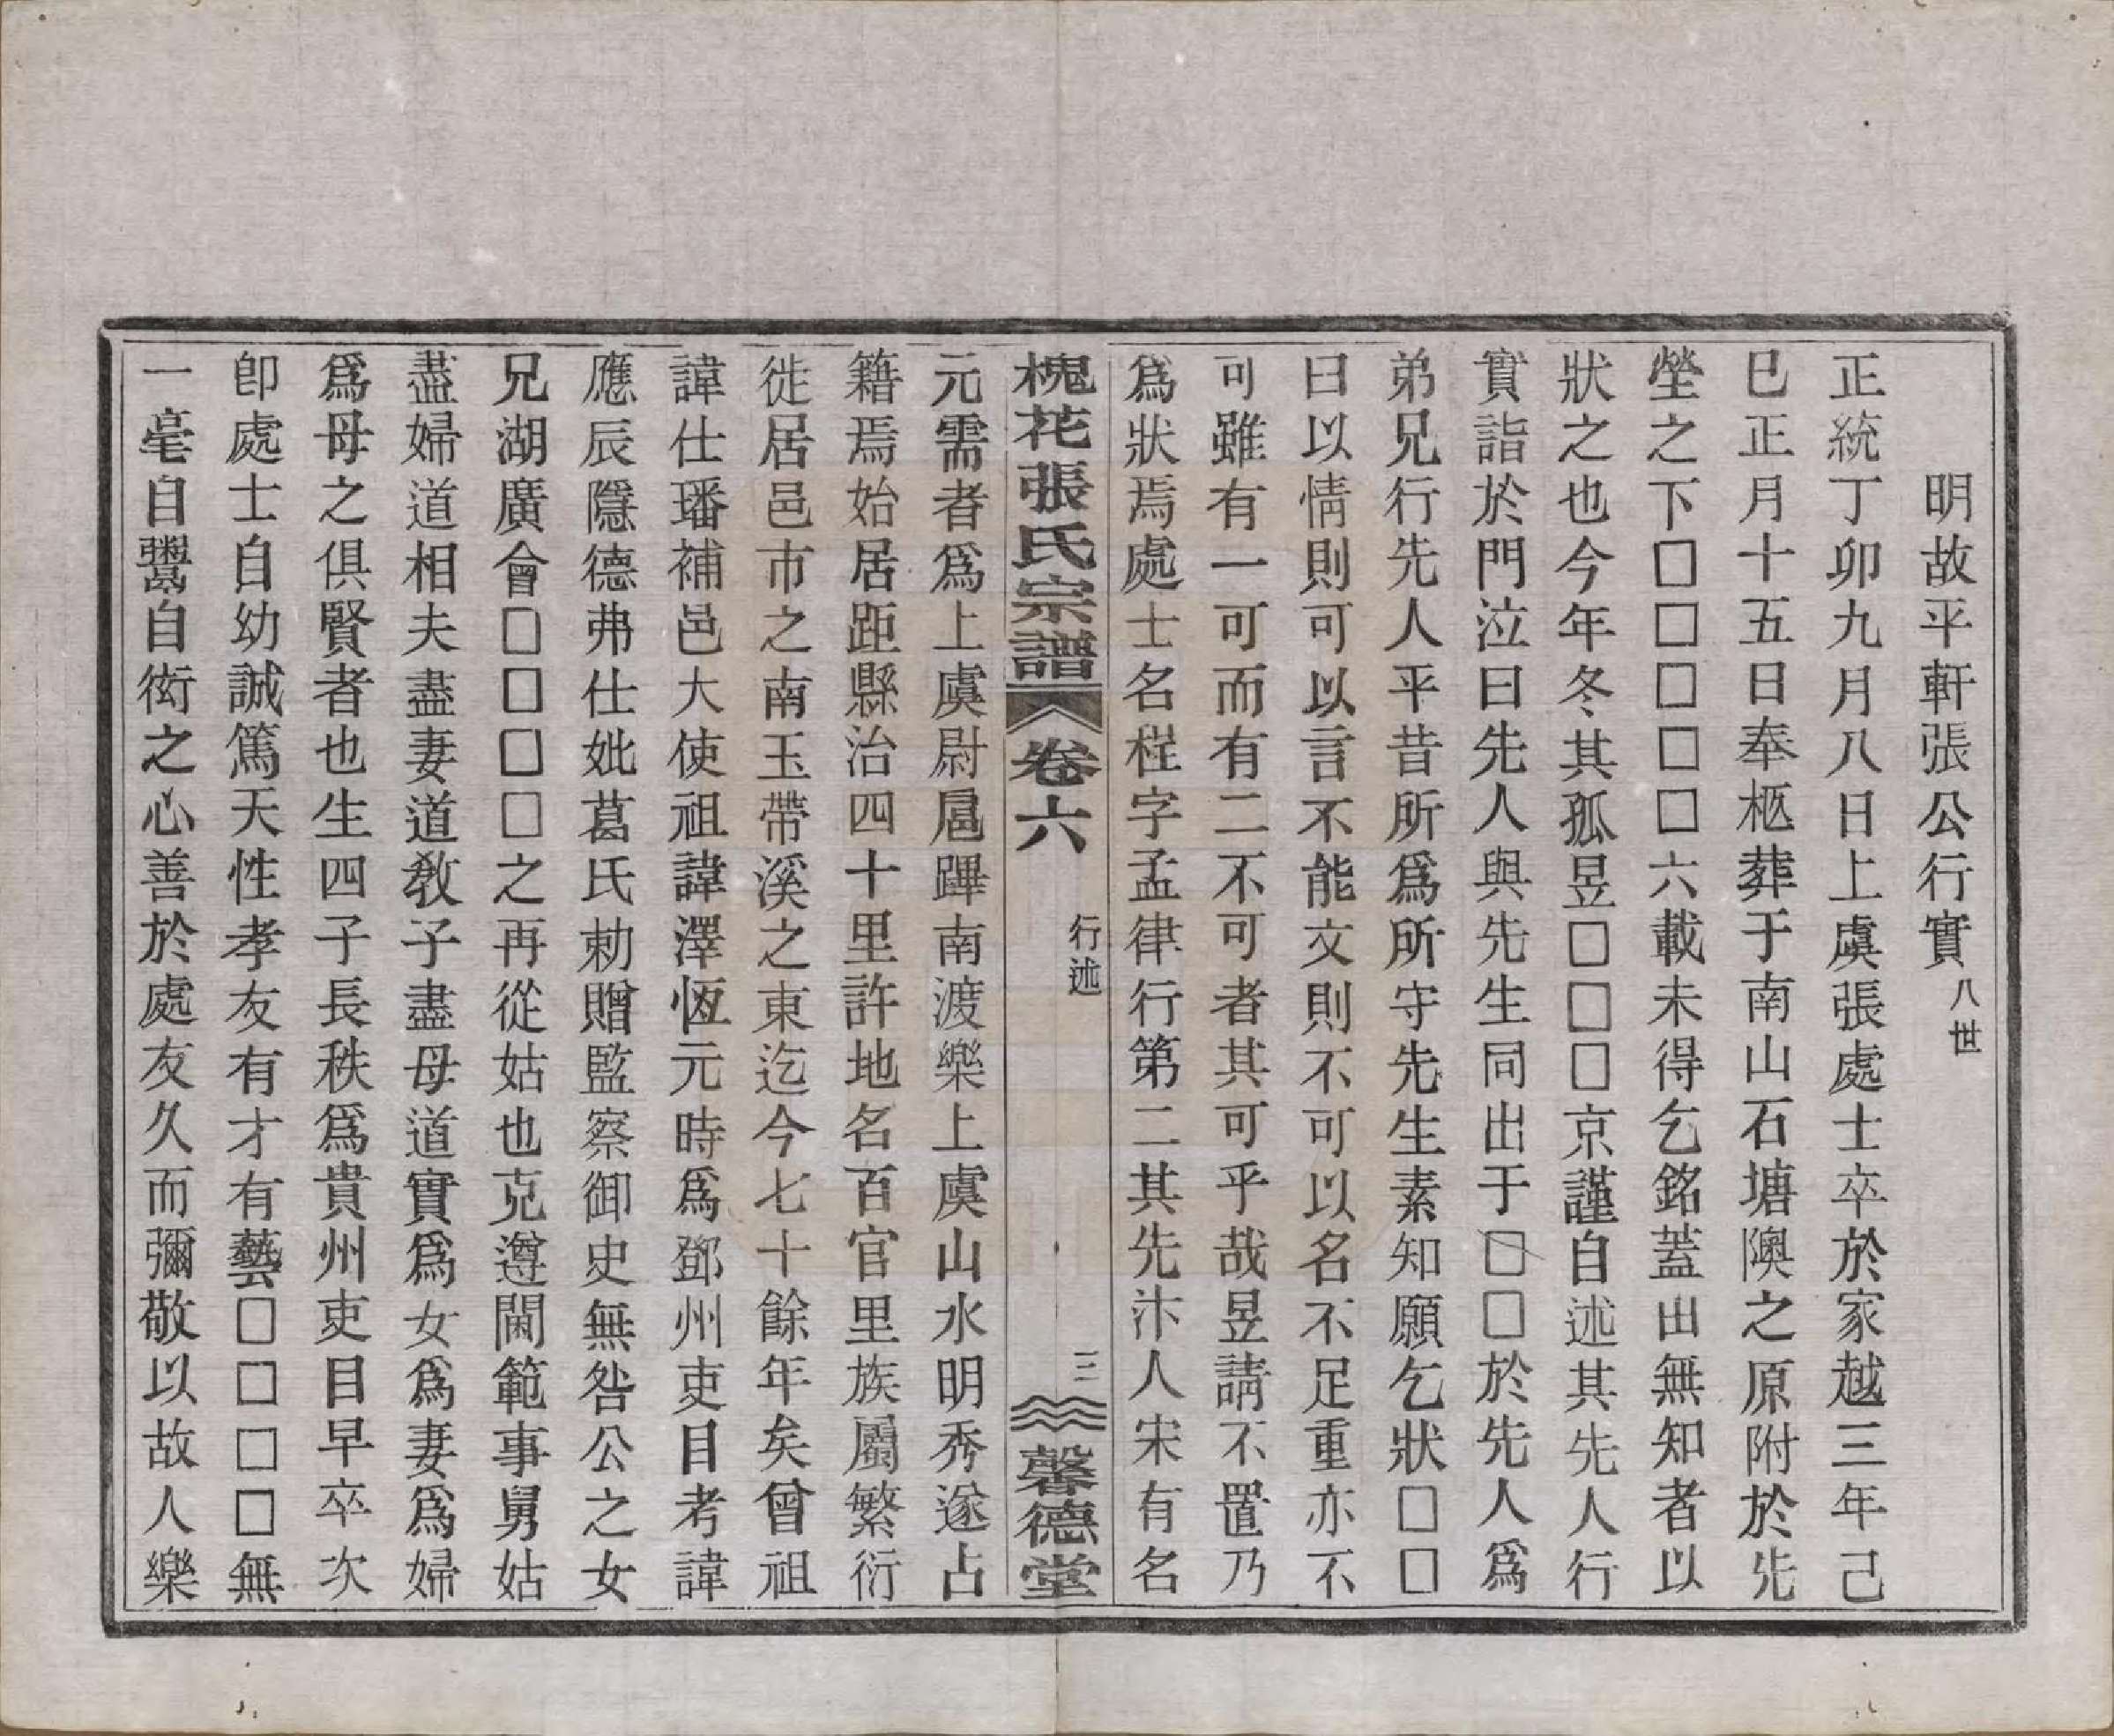 明故平軒張公行實八世
正統丁卯九月八日上虞張處士卒於家越三年己
巳正月十五日奉柩葬于南山石塘隩之原附於先
塋之下□□□□□六載未得乞銘蓋出無知者以
狀之也今年冬其孤昱□□□京謹自述其先人行
實詣於門泣曰先人與先生同出于□□於先人爲
弟兄行先人平昔所爲所守先生素知願乞狀□□
曰以情則可以言不能文則不可以名不足重亦不
可雖有一可而有二不可者其可乎哉昱請不置乃
爲狀焉處士名桯字孟律行第二其先汴人宋有名
槐花張氏宗譜
卷六
行述
三
馨德堂
元需者爲上虞尉扈蹕南渡樂上虞山水明秀遂占
籍焉始居距縣治四十里許地名百官里族屬繁衍
徙居邑市之南玉帶溪之東迄今七十餘年矣曾祖
諱仕璠補邑大使祖諱澤恆元時爲鄧州吏目考諱
應辰隱德弗仕妣葛氏勅贈監察御史無咎公之女
兄湖廣會□□□□之再從姑也克遵閫範事舅姑
盡婦道相夫盡妻道教子盡母道實爲女爲妻爲婦
爲母之俱賢者也生四子長秩爲貴州吏目早卒次
卽處士自幼誠篤天性孝友有才有藝□□□□無
一毫自鬻自衒之心善於處友久而彌敬以故人樂